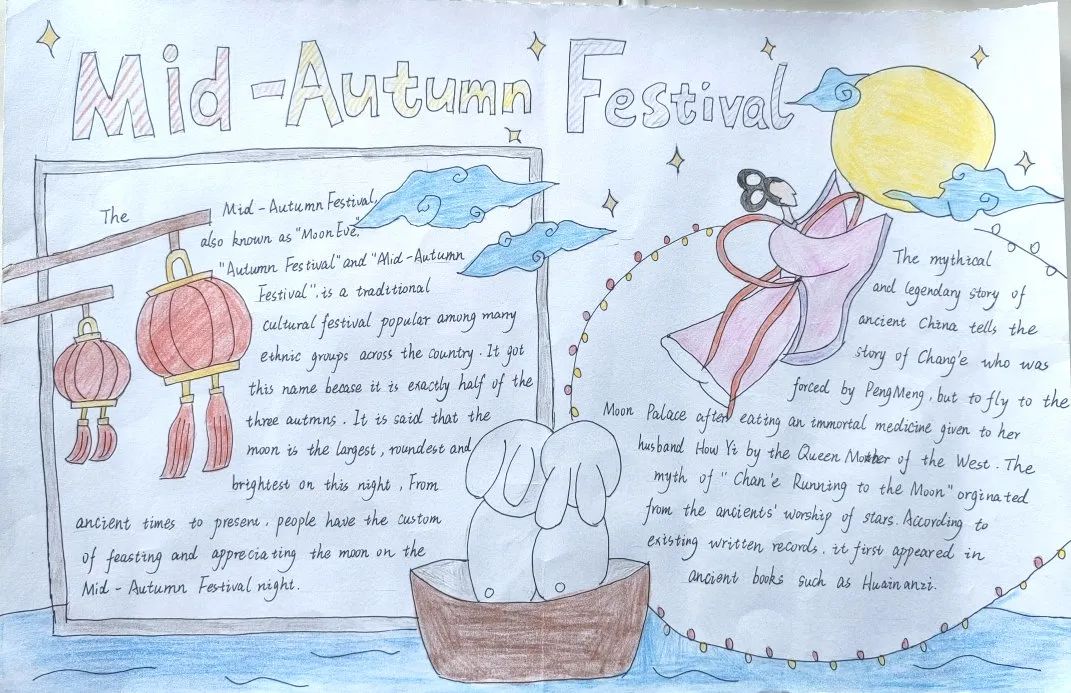 Mid-Autumn Festival
The Mid-Autumn Festival,
also known as "Moon Eve",
"Autumn Festival" and "Mid-Autumn
Festival", is a traditional
cultural festival popular among many
ethnic groups across the country. It got
this name becase it is exactly half of the
three autmns. It is said that the
moon is the largest, roundest and
brightest on this night, From
ancient times to present, people have the custom
of feasting and appreciating the moon on the
Mid-Autumn Festival night.
The mythical
and legendary story of
ancient China tells the
story of Chang'e who was
forced by PengMeng, but to fly to the
Moon Palace after eating an immortal medicine given to her
husband How Yi by the Queen Mother of the West. The
myth of "Chan'e Running to the Moon" orginated
from the ancients' worship of stars. According to
existing written records, it first appeared in
ancient books such as Huainanzi.